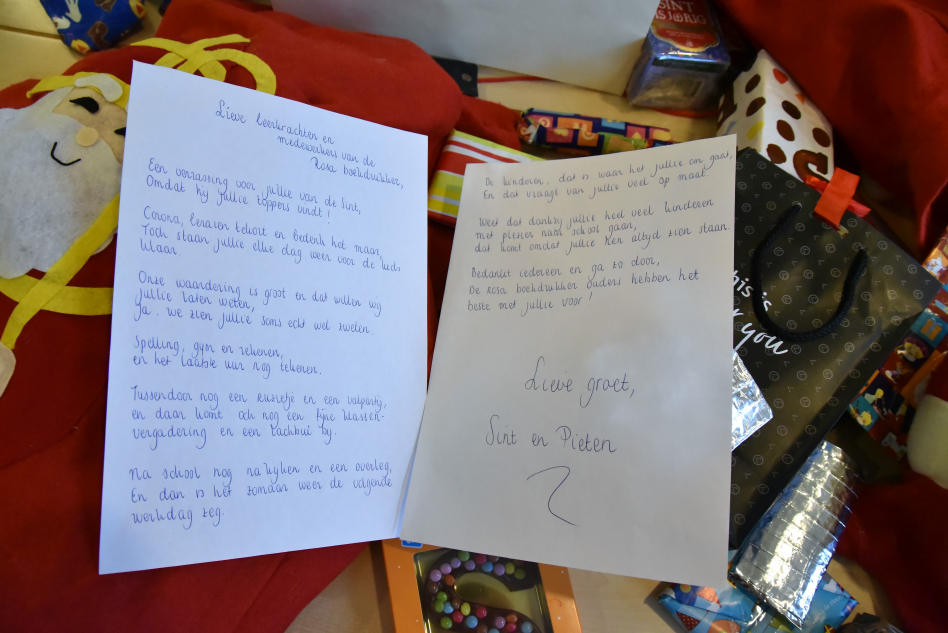 Lieve leerkrachten en
medewerkers van de
Rosa boekdrukker,
Een verrassing voor jullie van de Sint,
Omdat hij jullie toppers vindt!
Corona, leraren tekort en bedenk het maar,
Toch staan jullie elke dag weer voor de kids
klaar.
Onze waardering is groot en dat willen wij
jullie laten weten,
Ja, we zien jullie soms echt wel zweten.
Spelling, gym en rekenen,
en het laatste uur nog tekenen.
Tussendoor nog een ruzietje en een valpartij,
en daar komt och nog een fijne klassen-
vergadering en een lachbui bij.
Na school nog nakijken en een overleg,
En dan is het zomaar weer de volgende
werkdag zeg.
De kinderen, dat is waar het jullie om gaat,
En dat vraagt van jullie veel op maat.
Weet dat dankzij jullie heel veel kinderen
met plezier naar school gaan,
dat komt omdat jullie hen altijd zien staan.
Bedankt iedereen en ga zo door,
De Rosa boekdrukker ouders hebben het
beste met jullie voor!
Lieve groet,
Sint en Pieten
SINT
IS JARIG
his is
you